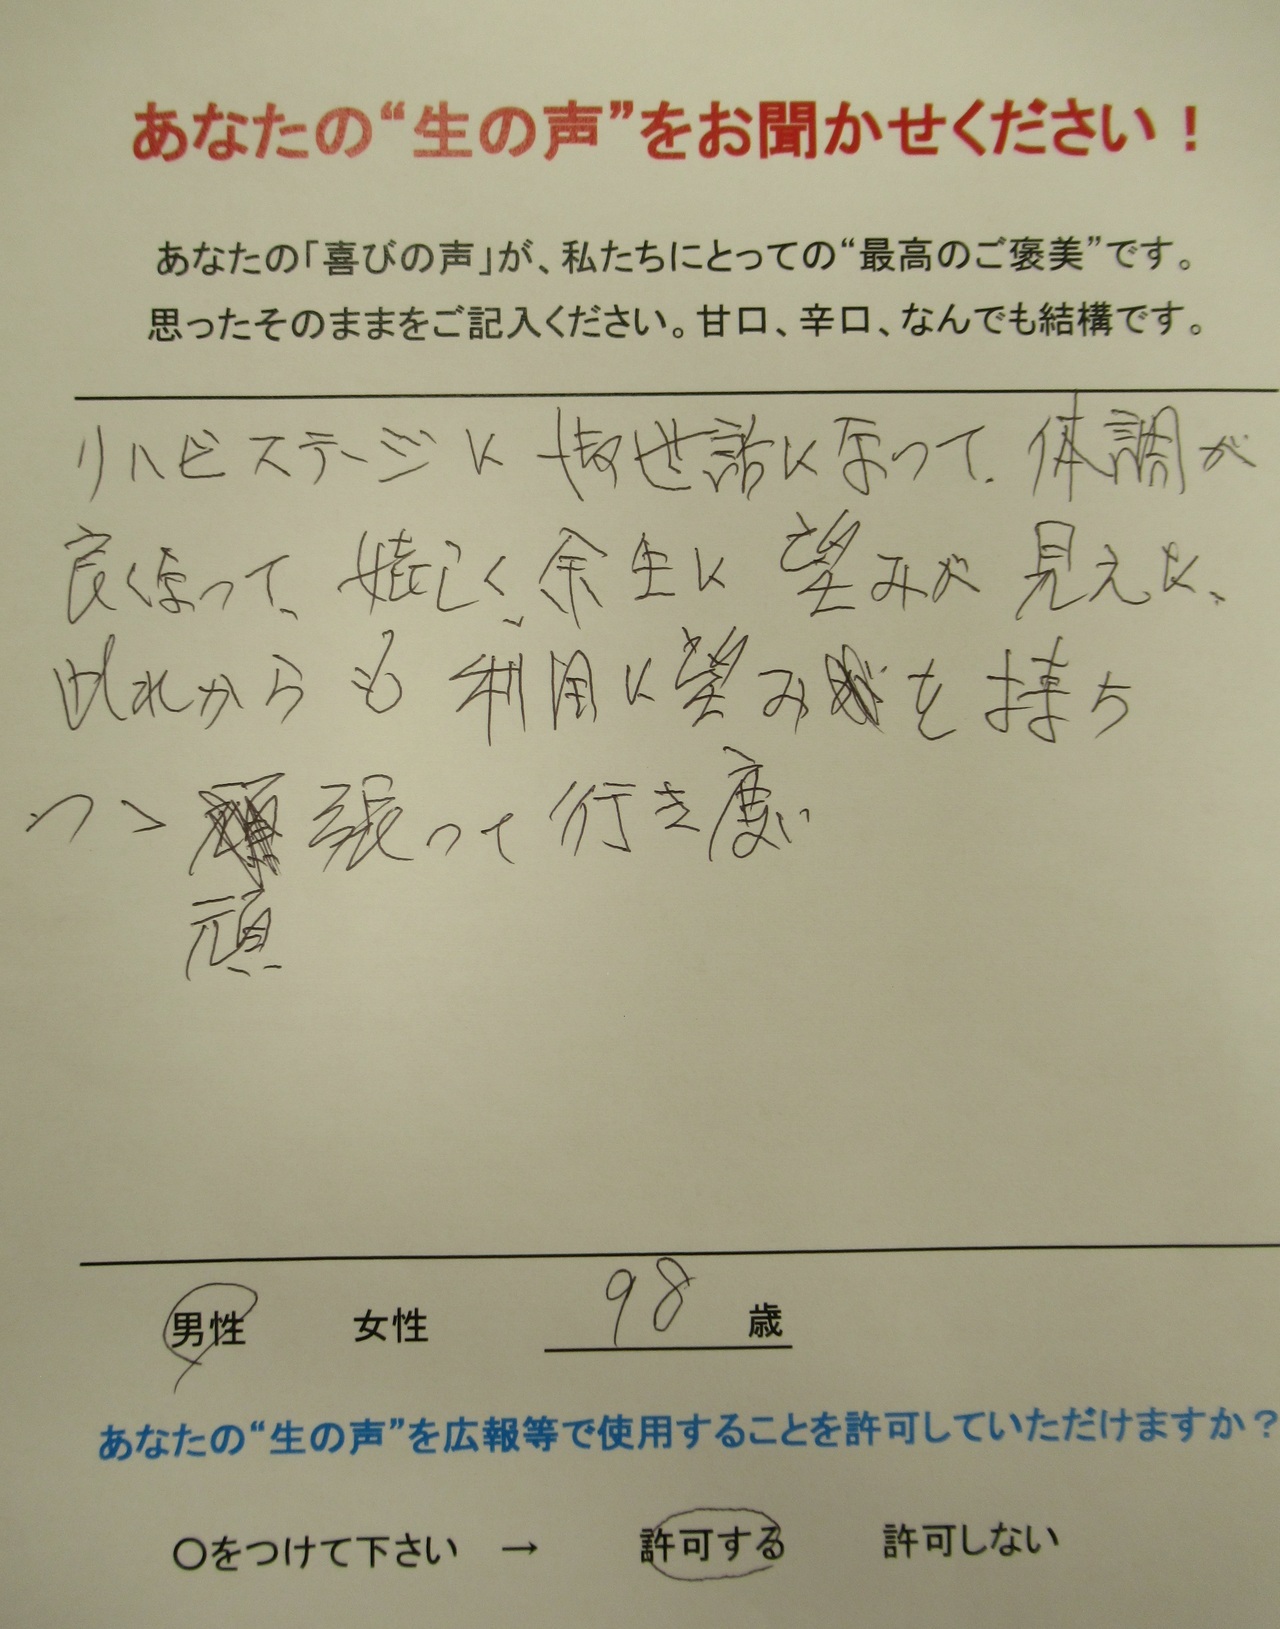 あなたの“生の声”をお聞かせください！
あなたの「喜びの声」が、私たちにとっての“最高のご褒美”です。
思ったそのままをご記入ください。甘口、辛口、なんでも結構です。
リハビステージに御世話になって、体調が
良くなって、嬉しく、余生に望みが見えた、
此れからも利用に望みを持ち
つゝ張って行き度い
頑
男性 女性 98 歳
あなたの“生の声”を広報等で使用することを許可していただけますか？
〇をつけて下さい → 許可する 許可しない